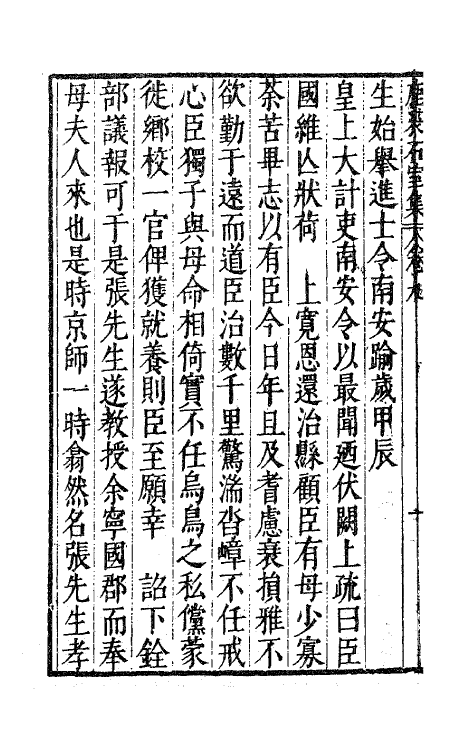 鹿裘石室集卷
十
生始舉進士令南安踰歲甲辰
皇上大計吏南安令以最聞廼伏闕上疏曰臣
國維亾狀荷　上寬恩還治縣顧臣有母少寡
荼苦畢志以有臣今日年且及耆慮衰損雅不
欲勤于遠而道臣治數千里驚湍沓嶂不任戒
心臣獨子與母命相倚實不任烏鳥之私儻蒙
徙鄉校一官俾獲就養則臣至願幸　詔下銓
部議報可于是張先生遂教授余寧國郡而奉
母夫人來也是時京師一時翕然名張先生孝